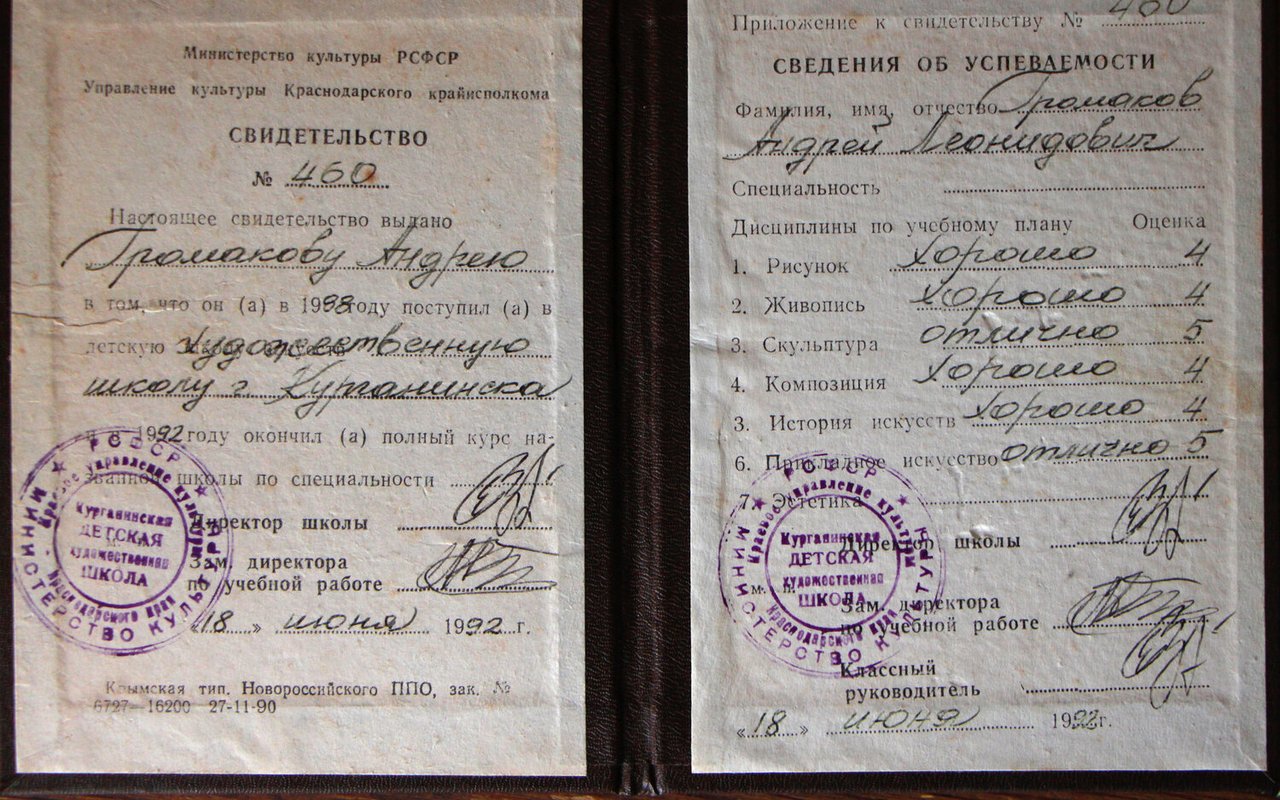 Министерство культуры РСФСР
Управление культуры Краснодарского крайисполкома
СВИДЕТЕЛЬСТВО
№ 460
Настоящее свидетельство выдано
Громакову Андрею
в том, что он (а) в 1988 году поступил (а) в
детскую художественную
школу г. Курганинска
и в 1992 году окончил (а) полный курс на-
званной школы по специальности
Директор школы
Зам. директора
по учебной работе
18 » июня 1992 г.
РСФСР
МИНИСТЕРСТВО КУЛЬТУРЫ
Краевое управление культуры
Краснодарского края
Курганинская
ДЕТСКАЯ
художественная
ШКОЛА
Крымская тип. Новороссийского ППО, зак. №
6727—16200 27-11-90
Приложение к свидетельству № 460
СВЕДЕНИЯ ОБ УСПЕВАЕМОСТИ
Фамилия, имя, отчество Громаков
Андрей Леонидович
Специальность
Дисциплины по учебному плану Оценка
1. Рисунок хорошо 4
2. Живопись хорошо 4
3. Скульптура отлично 5
4. Композиция хорошо 4
3. История искусств хорошо 4
6. Прикладное искусство отлично 5
7. Эстетика
Директор школы
м. п.
Зам. директора
по учебной работе
Классный
руководитель
«18» июня 1992 г.
РСФСР
МИНИСТЕРСТВО КУЛЬТУРЫ
Краевое управление культуры
Краснодарского края
Курганинская
ДЕТСКАЯ
художественная
ШКОЛА